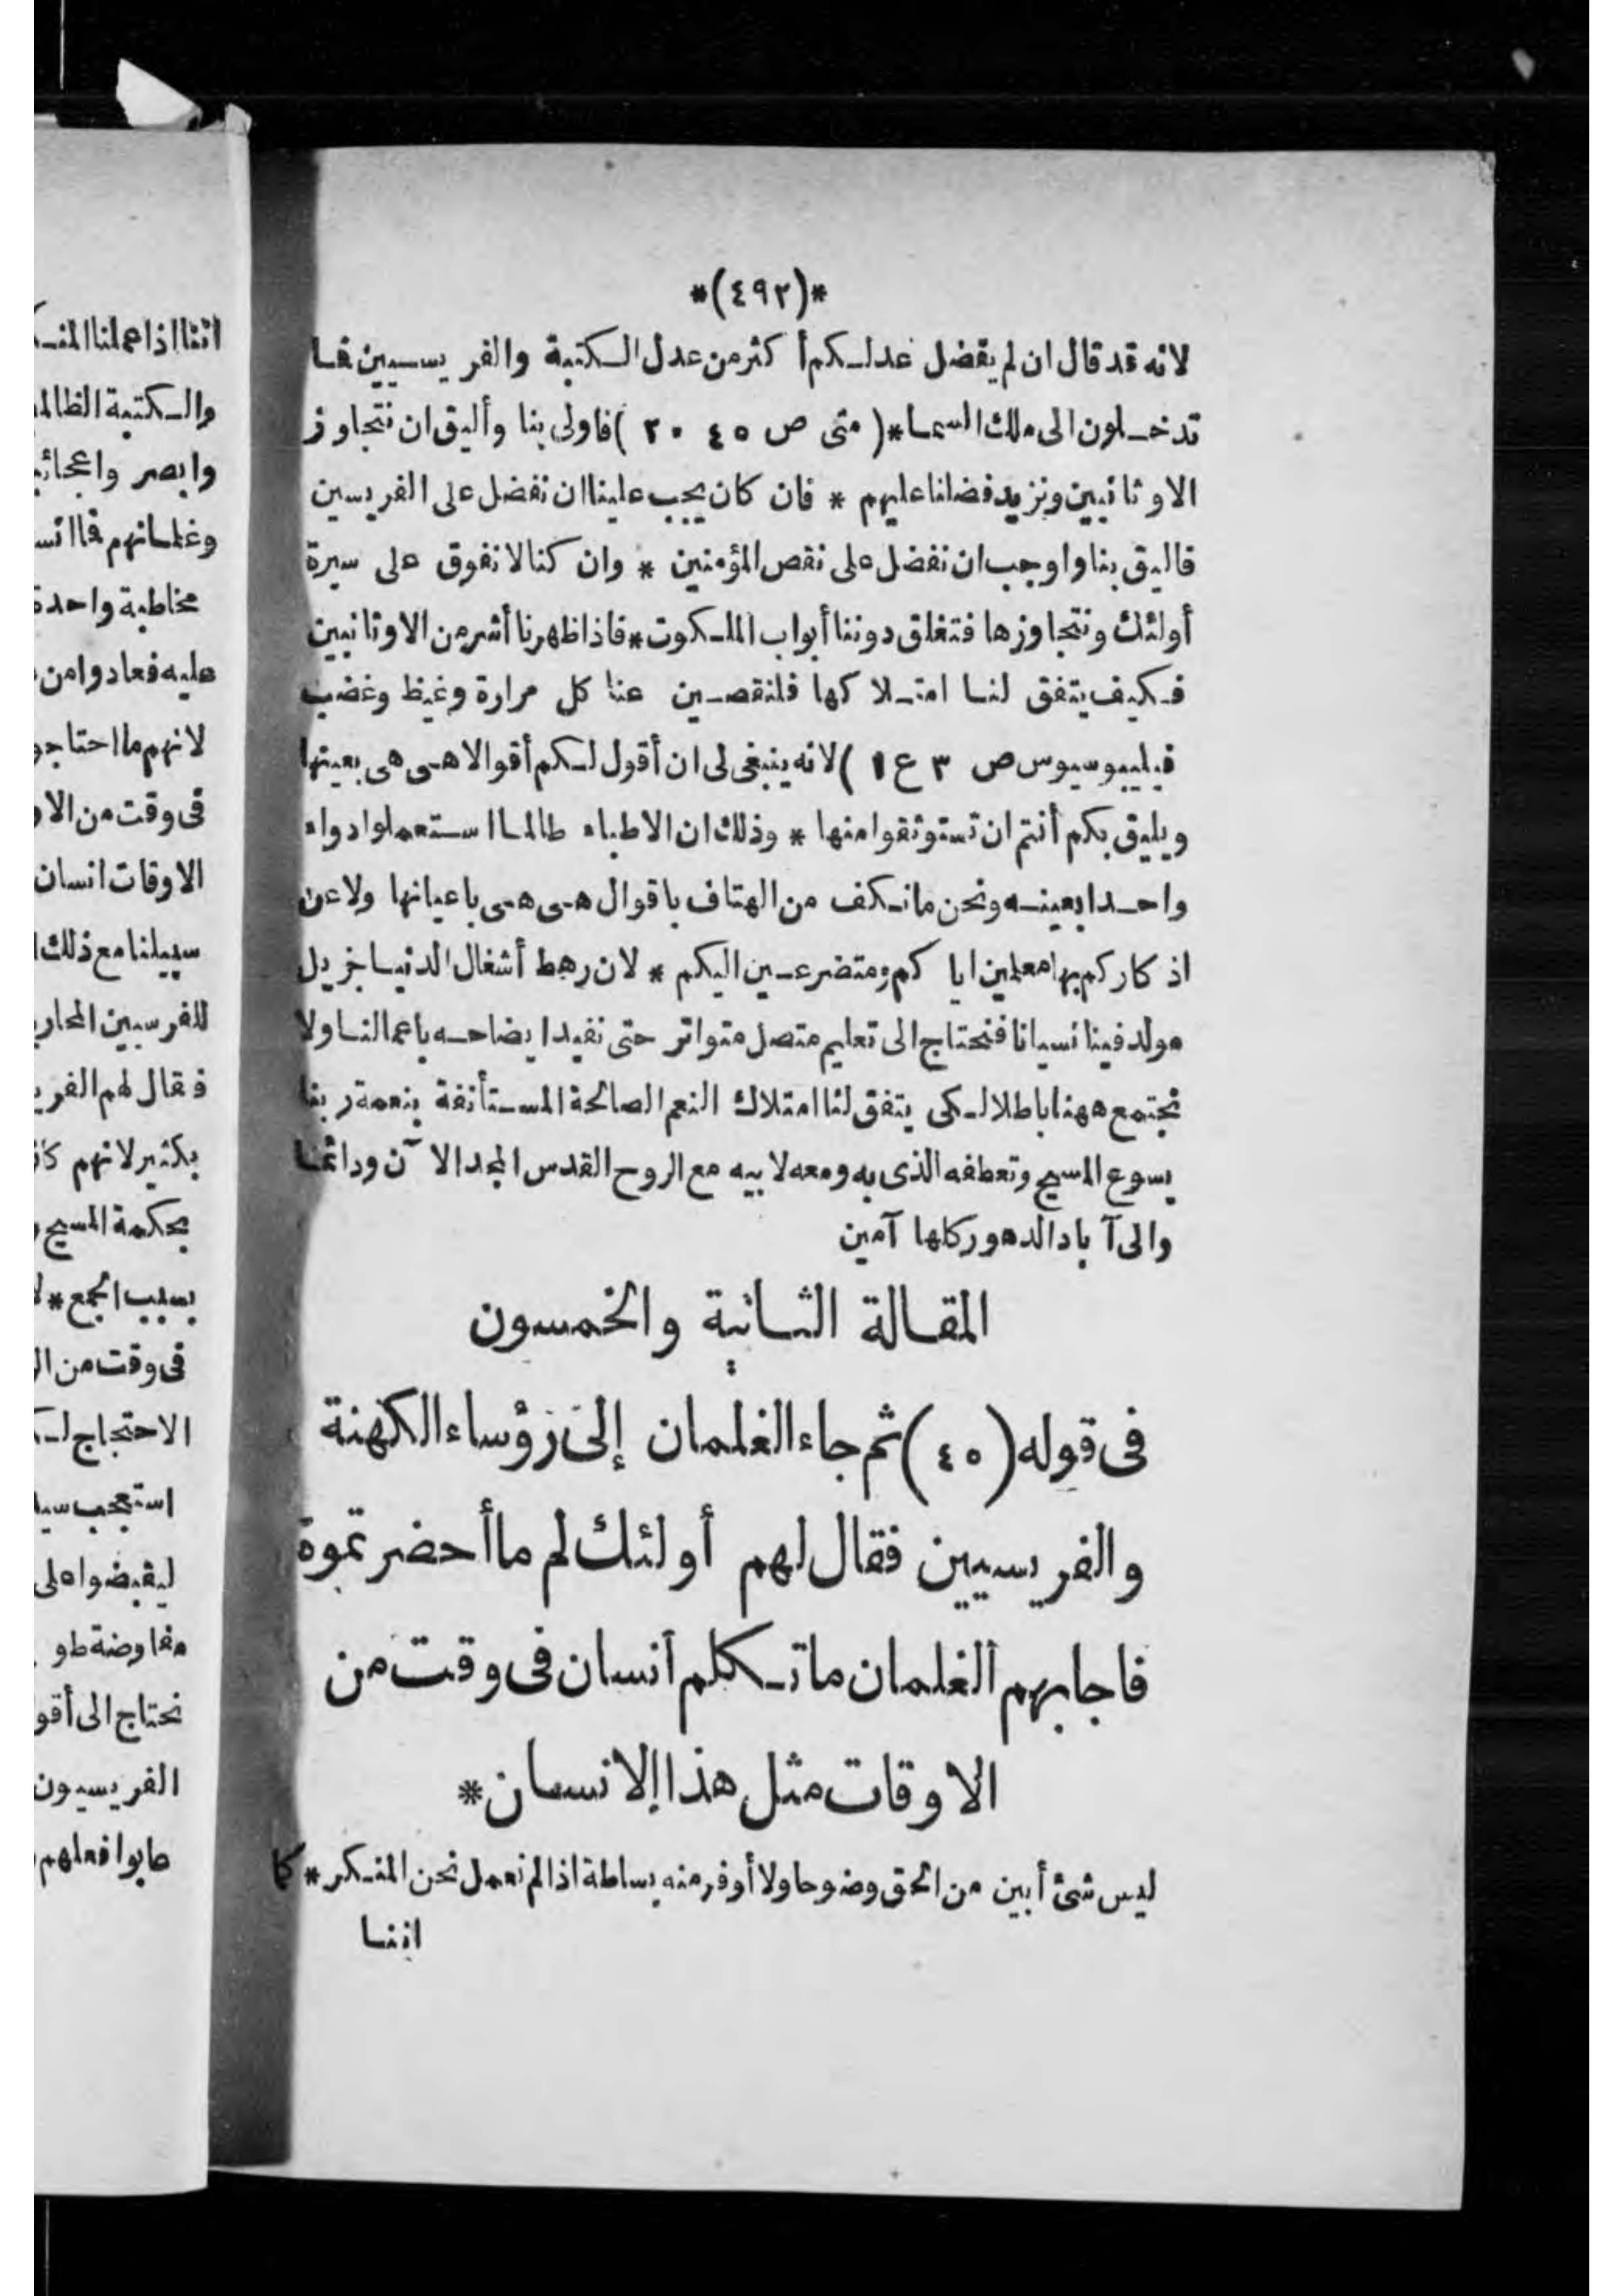 *(٤٩٢)*
لانه قد قال ان لم يفضل عدلكم أكثر من عدل الكتبة والفريسيين فما
تدخلون الى ملك السما* (متى ص ٥ ٤ ٢٠) فاولى بنا وأليق ان نتجاوز
الاوثانيين ونزيد فضلنا عليهم * فان كان يجب علينا ان نفضل على الفريسين
فاليق بنا واوجب ان نفضل على نقص المؤمنين * وان كنا لا نفوق على سيرة
أولئك ونتجاوزها فتغلق دوننا أبواب الملكوت * فاذا ظهرنا أشر من الاوثانيين
فكيف يتفق لنا امتلاكها فلنقصين عنا كل مرارة وغيظ وغضب
فيليبوسيوس ص ٣ ع ١) لانه ينبغى لى ان أقول لكم أقوالا هى هى بعينها
ويليق بكم أنتم ان تستوثقوا منها * وذلك ان الاطباء طالما استعملوا دواء
واحدا بعينه ونحن ما نكف من الهتاف باقوال هى هى باعيانها ولا عن
اذكاركم بها معلمين اياكم ومتضرعين اليكم * لان رهط أشغال الدنيا جزيل
مولد فينا نسيانا فنحتاج الى تعليم متصل متواتر حتى نفيد ايضاحه باعمالنا ولا
نجتمع ههنا باطلا لكى يتفق لنا امتلاك النعم الصالحة المستأنفة بنعمة ربنا
يسوع المسيح وتعطفه الذى به ومعه لابيه مع الروح القدس المجد الآن ودائما
والى آباد الدهور كلها آمين
المقالة الثانية والخمسون
فى قوله (٤٥) ثم جاء الغلمان إلى رؤساء الكهنة
والفريسيين فقال لهم أولئك لم ما أحضرتموة
فاجابهم الغلمان ما تكلم انسان فى وقت من
الاوقات مثل هذا الانسان *
ليس شئ أبين من الحق وضوحا ولا أوفر منه بساطة اذا لم نعمل نحن المنكر * كما
اننا
اننا اذا عملنا
والكتبة
وابصر
وغلمانهم
مخاطبة واحدة
عليه فعادوا من
لانهم ما احتاجو
فى وقت من الاو
الاوقات انسان
سبيلنا مع ذلك
للفرسيين
فقال لهم
بكثير لانهم
بحكمة المسيح
بسبب الجمع *
فى وقت من
الاحتجاج
استعجب
ليقبضوا على
مفاوضة
نحتاج الى
الفريسيون
عابوا فعلهم